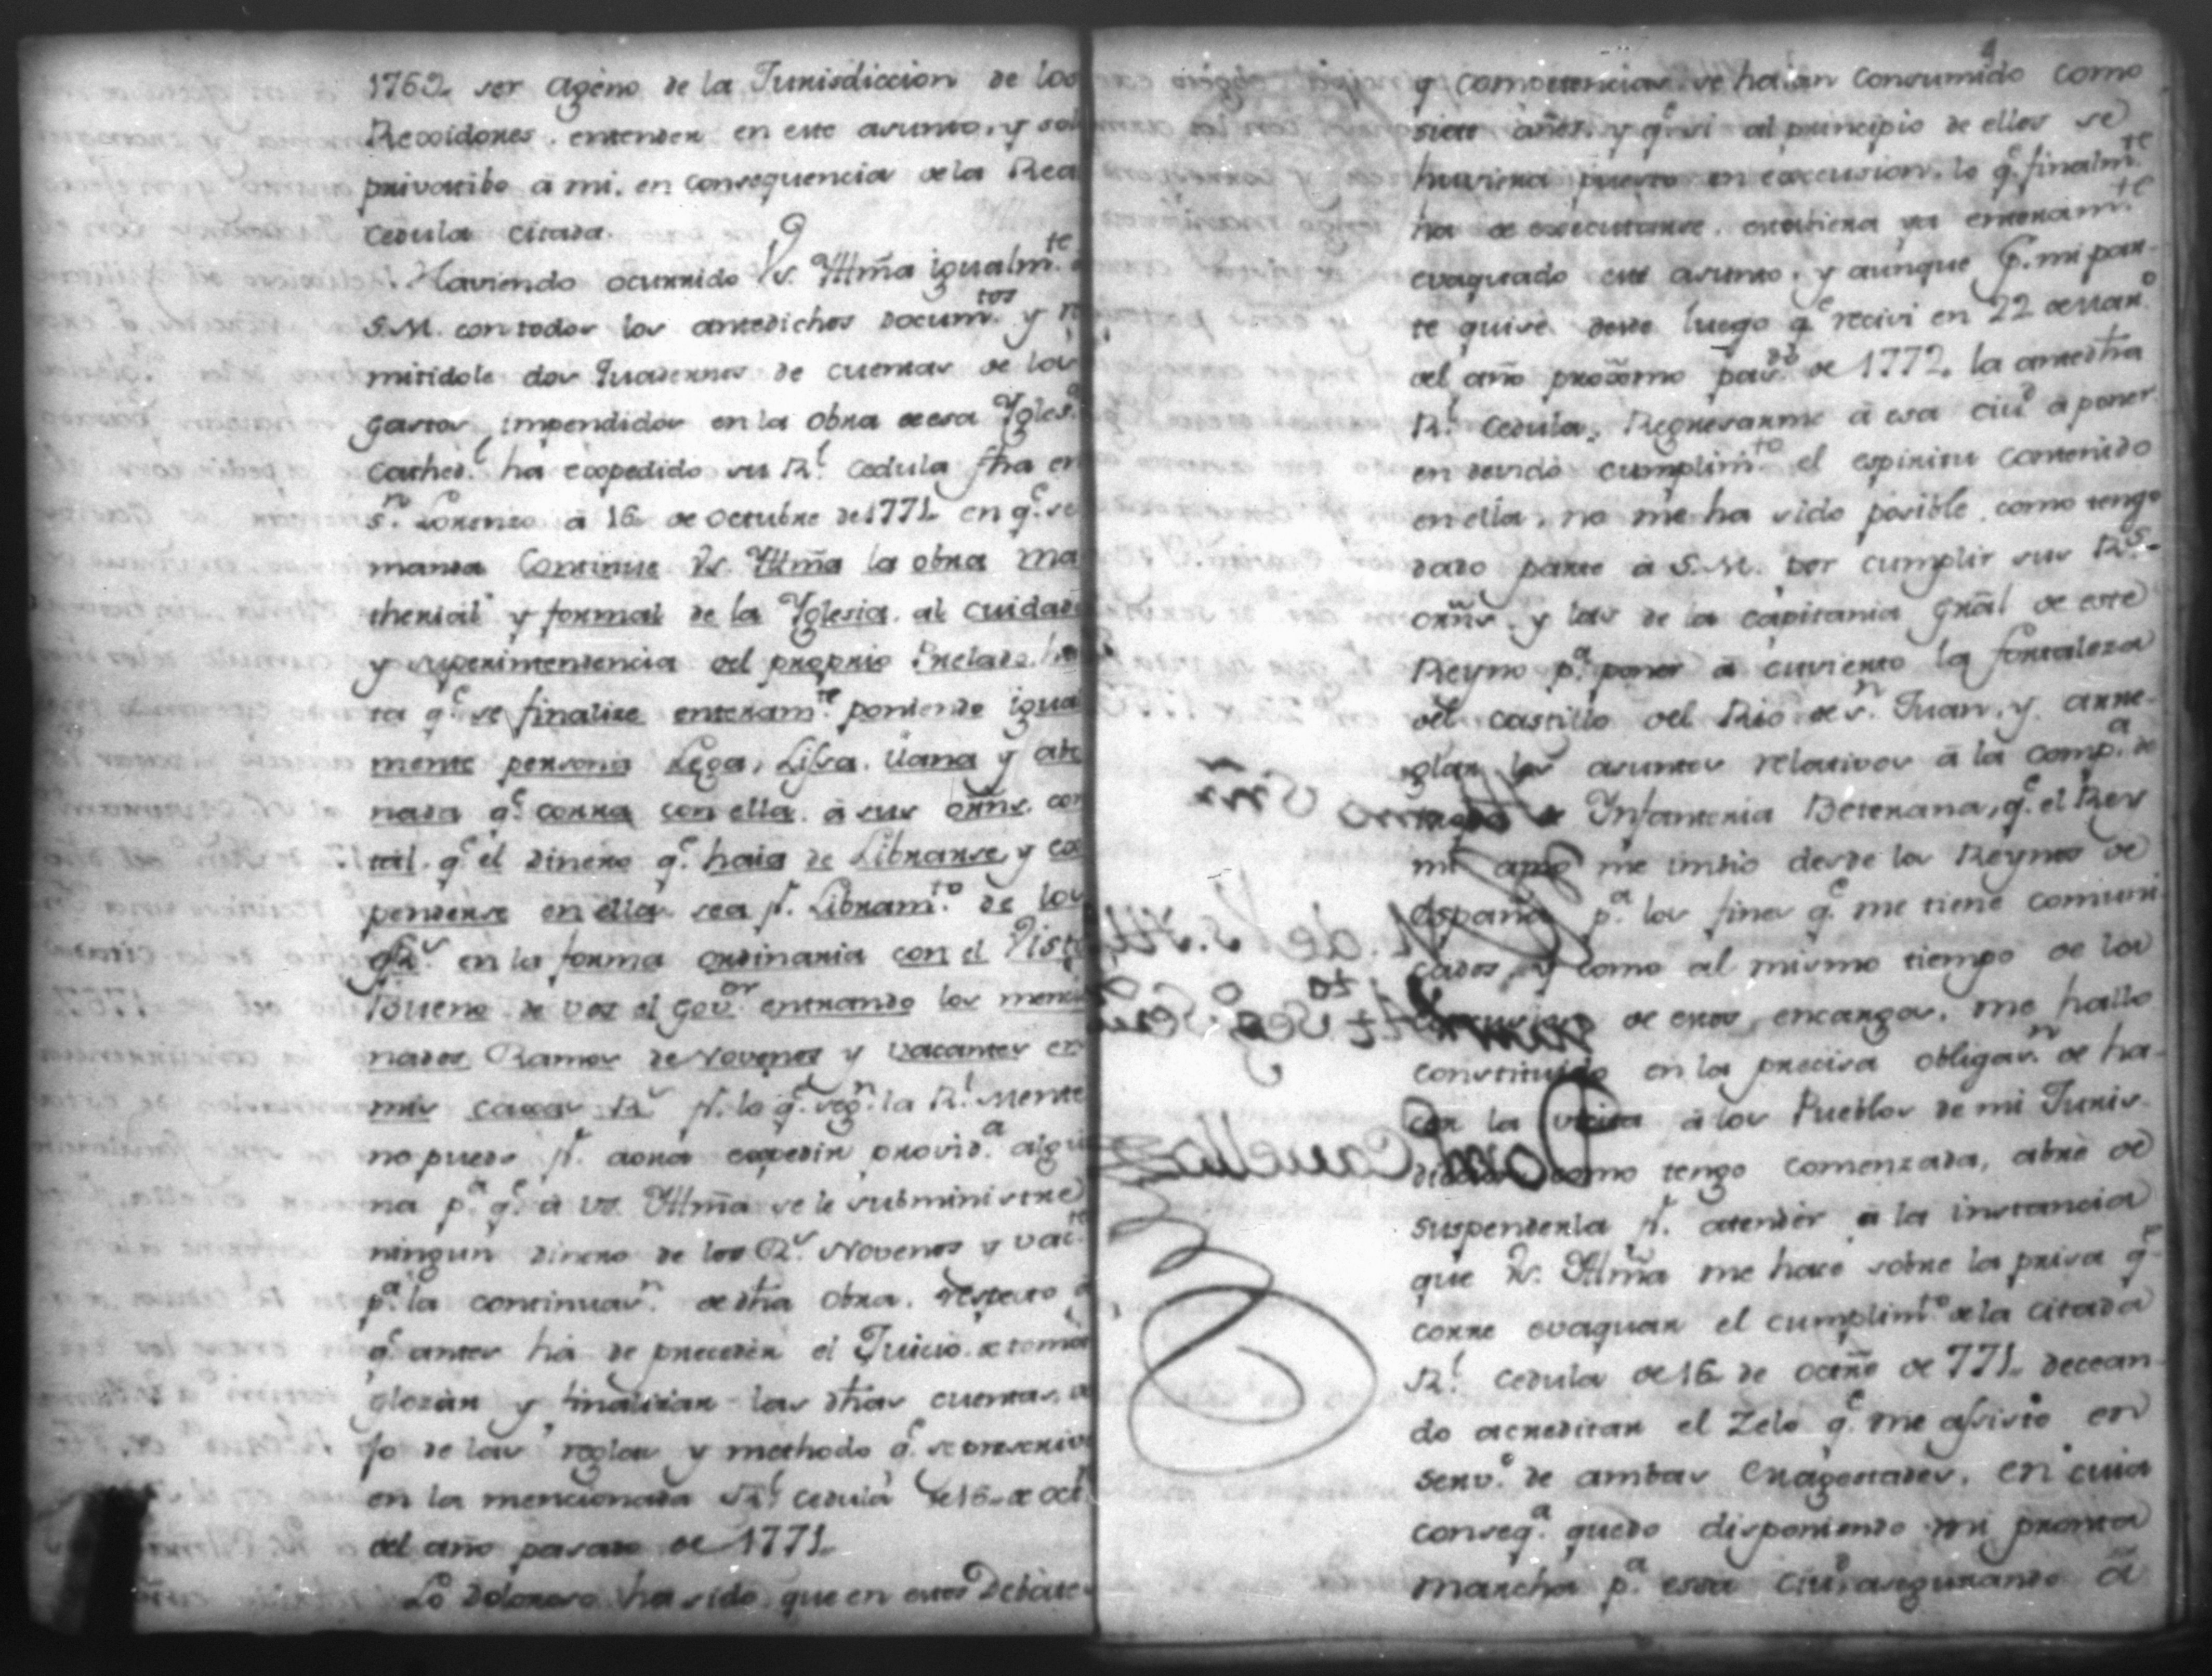 1769. ser ageno de la Jurisdiccion de los
Rexidores, entender en este asunto, y sol
privatibo a mi, en consequencia de la Rea
cedula citada.
Haviendo ocurrido Vs. Yllma igualmte. a
S.M. con todos los antedichos documtos. y re
mitidole dos Quadernos de cuentas de los
gastos impendidos en la obra de esa Yglesa.
Cathedl. ha expedido su Rl. cedula fha en
Sn. Lorenzo a 16 de octubre de 1771 en qe. se
manda Continue Vs. Yllma la obra ma
therial y formal de la Yglesia, al cuidado
y superintendencia del proprio Prelado, ha
ta qe. se finalize enteramte. poniendo igual
mente persona Lega, Lisa, llana y abo
nada qe. corra con ella, a sus orns. con
tal, qe. el dinero qe. haia de Librarse, y ex
penderse en ella sea pr. Libramto. de los
en la forma ordinaria con el Visto
Bueno de vos el Govor. entrando los mencio
nados Ramos de Novenos y vacantes en
mis caxas Rs. pr. lo qe. segn. la Rl. Mente
no puedo pr. aora expedir provida. algu
na pa. qe. a Vs. Yllma se le subministre
ningun dinero de los Rs. Novenos y vacte.
pa. la continuasn. de dha obra, respecto a
qe. antes ha de preceder el Juicio de tomar
glozar y finalizar las dhas cuentas, a
jo de las reglas y methodo qe. se prescrive
en la mencionada Rl. cedula de 16 de oct
del año pasado de 1771.
Lo doloroso ha sido, que en estos Debates
y competencias se haian consumido como
siete años, y qe. si al principio de ellos se
huviera puesto en execusion, lo qe. finalmte.
ha de executarse, estuviera ya enteramte.
evaquado este asunto, y aunque Pr. mi par-
te quise desde luego qe. recivi en 22 de Marzo
del año proximo pasdo. de 1772. la antedha
Rl. Cedula, Regresarme a esa ciud. a poner
en devido cumplimto. el espiritu contenido
en ella, no me ha sido posible, como tengo
dado parte a S.M. por cumplir sus Rs.
orns. y las de la capitania gral de este
Reyno pa. poner a cuvierto la fortaleza
del castillo del Rio de Sn. Juan, y arre-
glar los asuntos relativos a la compa. de
Infanteria Beterana, qe. el Rey
mi amo me imbio desde los Reynos de
España pa. los fines qe. me tiene comuni
cados, y como al mismo tiempo de los
de estos encargos, me hallo
constituido en la precisa obligasn. de ha-
cer la visita a los Pueblos de mi Juris-
diccion como tengo comenzada, abre de
suspenderla pr. atender a la instancia
que Vs. Yllma me hace sobre la prisa qe.
corre evaquar el cumplimto. de la citada
Rl. cedula de 16 de octre de 771. decean-
do acreditar el Zelo qe. me assiste en
servo. de ambas Magestades, en cuia
conseqa. quedo disponiendo mi pronta
marcha pa. essa Ciud. asegurando a